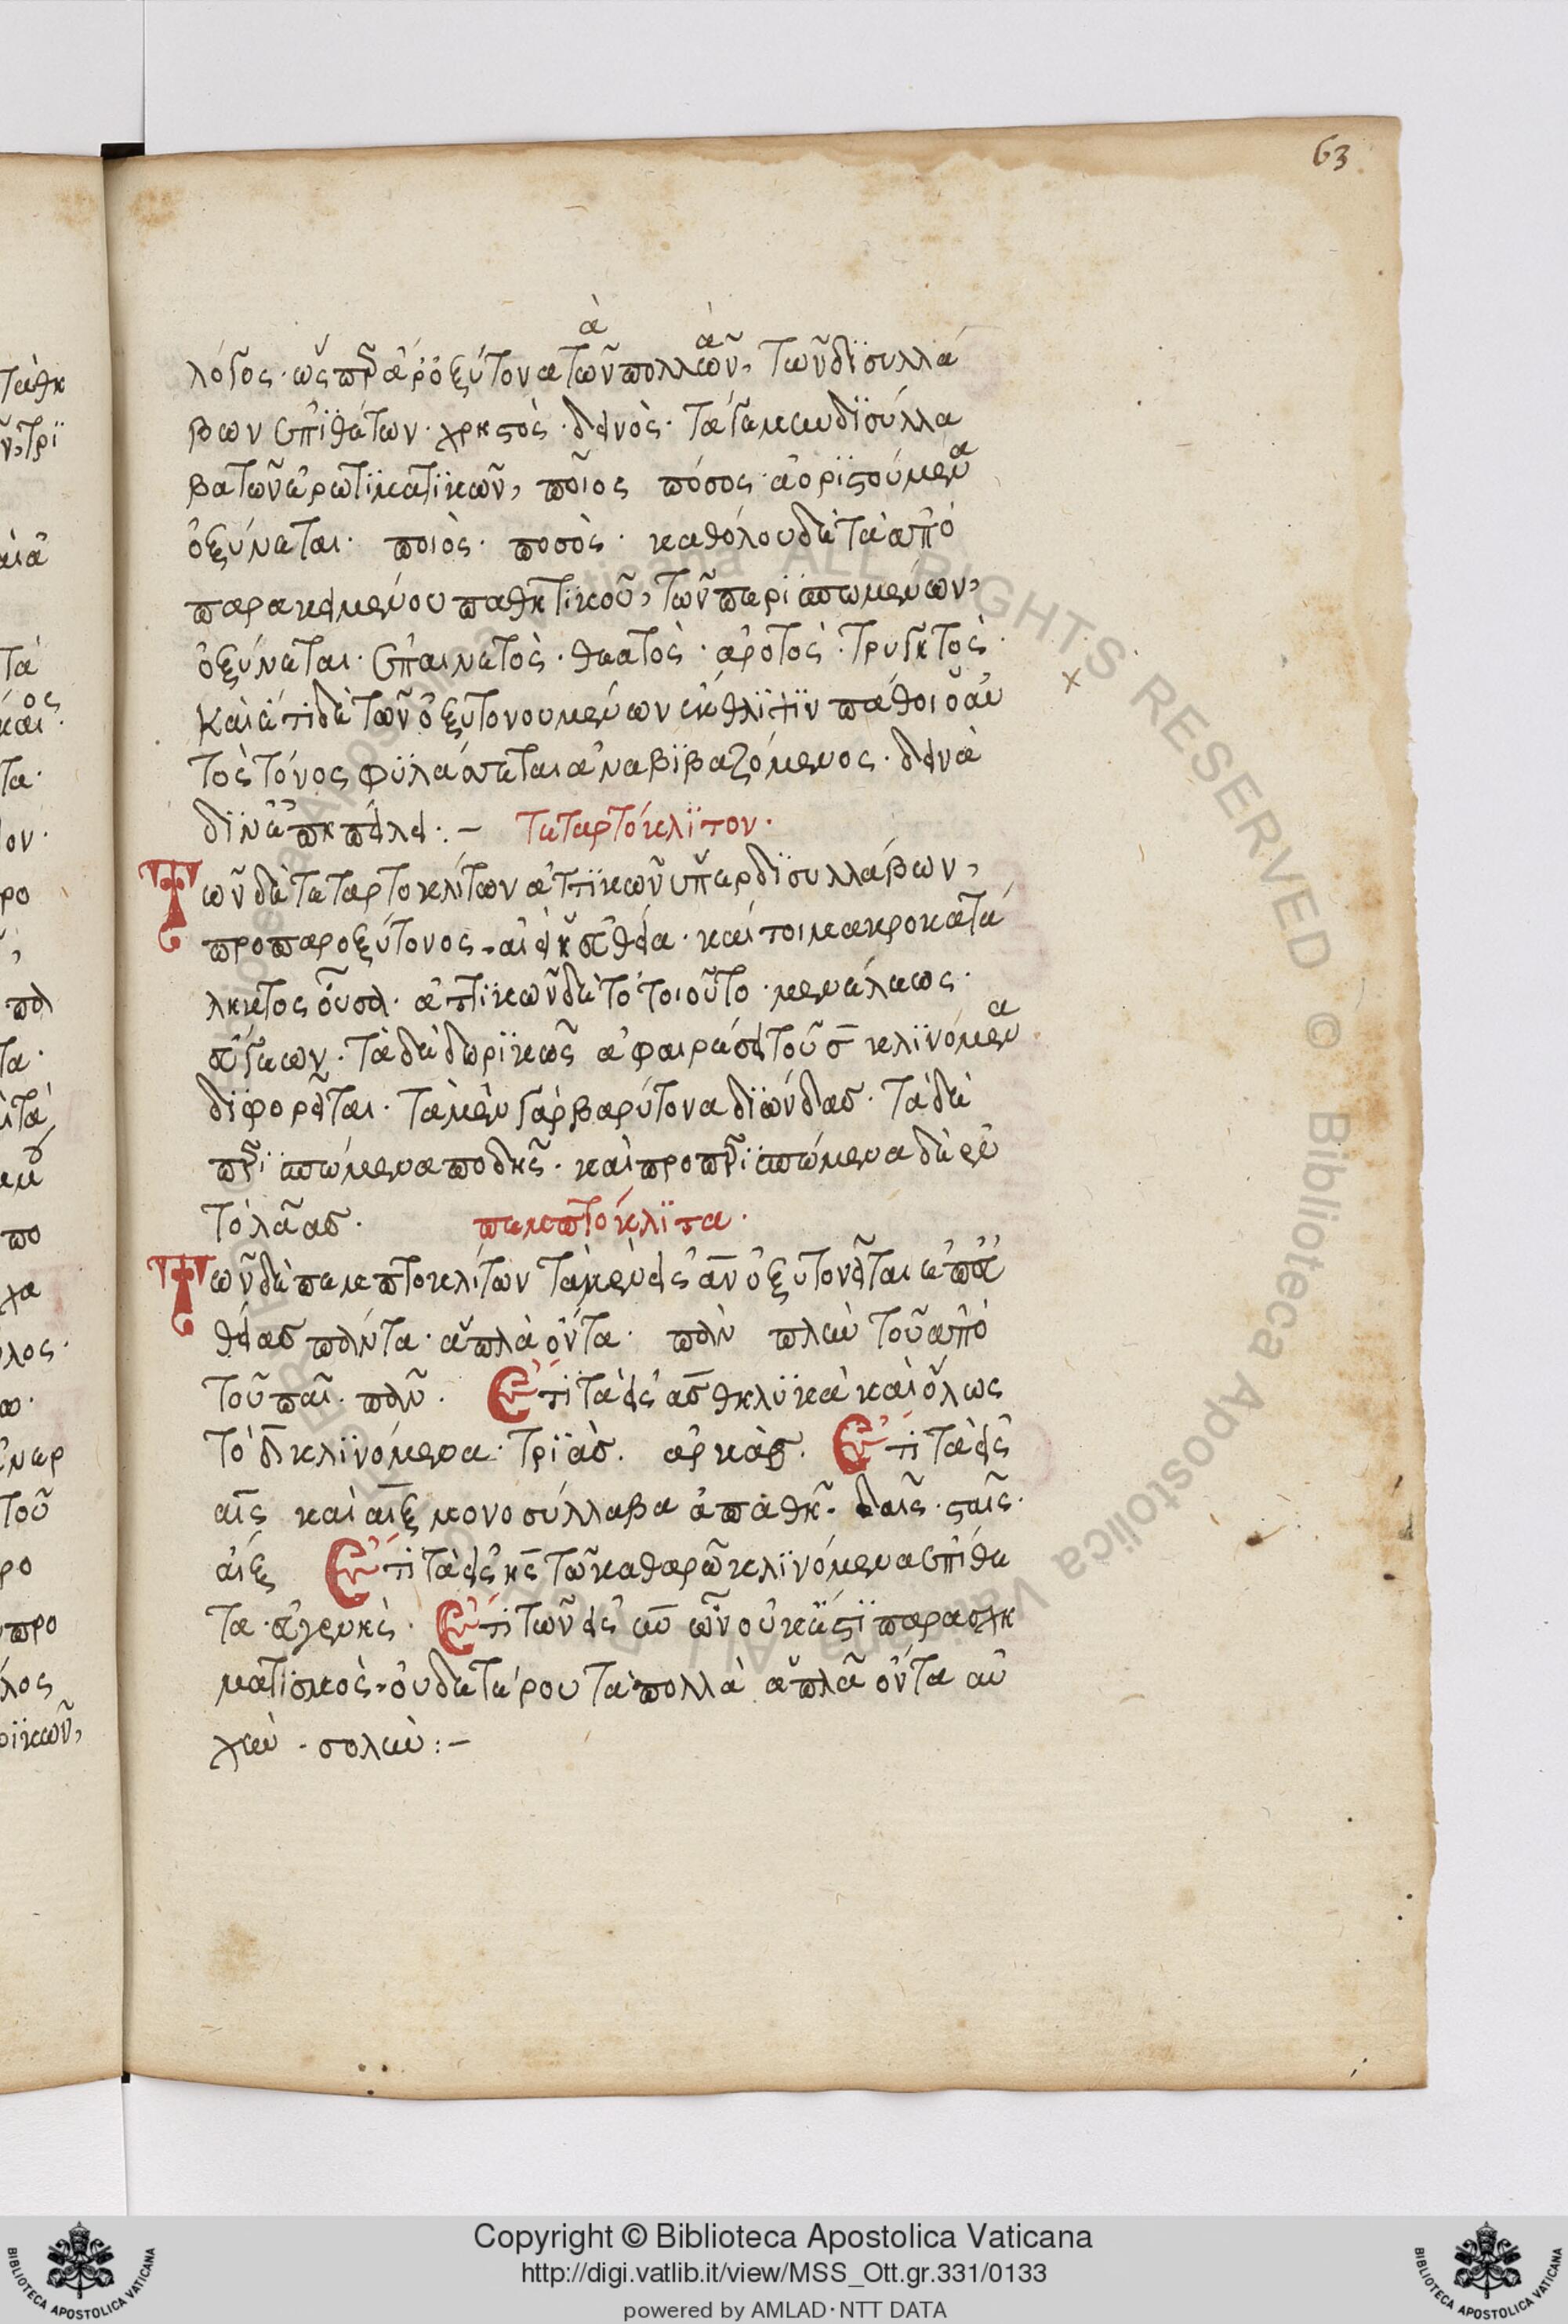 63
λόγος· ὡς παροξύτονα τῶν πολλῶν, τῶν δϊσυλλά
βων ἐπϊθέτων· χρηστὸς· δεινὸς· τά γε μὲν δϊσύλλα
βα τῶν ἐρωτϊματϊκῶν, ποῖος πόσος ἀορϊστούμενα
ὀξύνεται· ποιὸς· ποσὸς· καθόλου δὲ τὰ ἀπὸ
παρακειμένου παθητϊκοῦ, τῶν περϊσπωμένων,
ὀξύνεται· ἐπαινετὸς· θεατὸς· ἀροτὸς· τρυγητὸς·
Καὶ ἔτι δὲ τῶν ὀξυτονουμένων ἐκθλϊψϊν πάθοι ὁ αὐ
τὸς τόνος φϋλάττεται ἀναβϊβαζόμενος· δεινὰ
τεταρτόκλϊτον·
Τῶν δὲ τεταρτοκλίτων ἀττϊκῶν ὑπὲρ δϊσυλλάβων,
προπαροξύτονος· καί τοι μακροκατά
ληκτος οὖσα· ἀττϊκῶν δὲ τὸ τοιοῦτο· μενέλεως·
τὰ δὲ δωρϊκῶς ἀφαιρέσει τοῦ σ κλϊνόμενα
δϊφορεῖται· τὰ μὲν γὰρ βαρύτονα τὰ δὲ
περϊσπώμενα ποδῆς· καὶ προπερϊσπώμενα δὲ ἐν
τὸ λᾶας·
πεμπτόκλϊτα·
Τῶν δὲ πεμπτοκλίτων τὰ μὲν εἰς ἂν ὀξυτονεῖται
ἁπλὰ ὄντα· τοῦ ἀπὸ
τοῦ πᾶι· Ἔτι τὰ εἰς ας θηλϋκὰ καὶ ὅλως
τὸ δ κλϊνόμενα· τρϊὰς· ἀρκὰς· Ἔτι τὰ εἰς
αις καὶ αιξ μονοσύλλαβα δαις· σταις·
αἰξ Ἔτι τὰ εἰς ης τῶ καθαρῶ κλϊνόμενα ἐπίθε
τα· ἀγενὴς· Ἔτι τῶν εἰς ὧν οὐκ ἔστϊ παρασχη
ματϊσμὸς· οὐδετέρου τὰ πολλὰ ἁπλᾶ ὄντα αὐ
χὲν· σολὲν:-
Copyright © Biblioteca Apostolica Vaticana
http://digi.vatlib.it/view/MSS_Ott.gr.331/0133
powered by AMLAD·NTT DATA